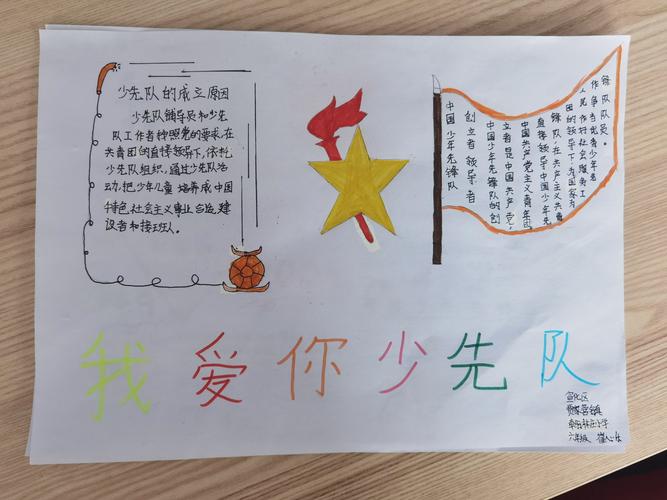 少先队的成立原因
少先队辅导员和少先
队工作者按照党的要求,在
共青团的直接领导下,依托
少先队组织,通过少先队活
动,把少年儿童培养成中国
特色社会主义事业合格建
设者和接班人。
中国少年先锋队
创立者领导者
中国少年先锋队的创
立者是中国共产党,
中国共产党主义青年团
直接领导中国少年先
锋队,在共产主义共青
团的领导下,为国家为
人民作对社会服务工
作争当优秀少年先
锋队队员。
我爱你少先队
宣化区
贾家营镇
林庄小学
六年级 崔心